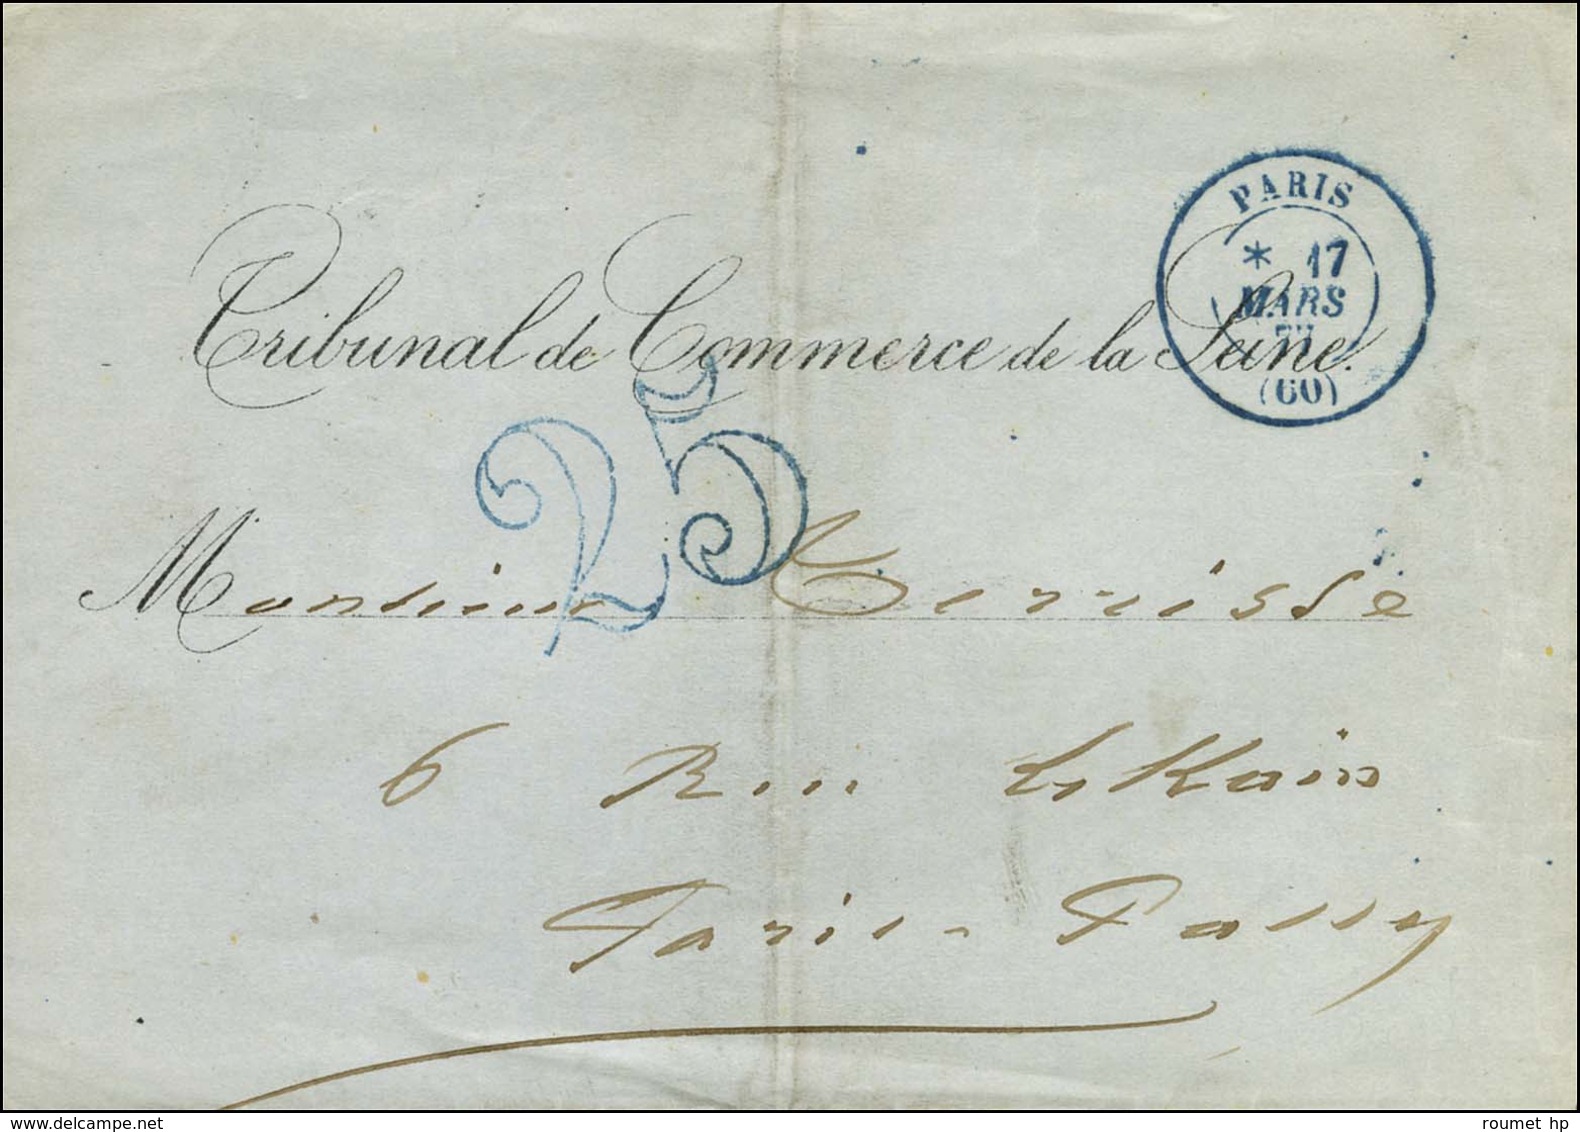 PARIS
* 17
MARS
77
(60)
Tribunal de Commerce de la Seine.
25
Monsieur Terrisse
6 Rue LeKain
Paris-Passy
delcampe.net
roumet hp